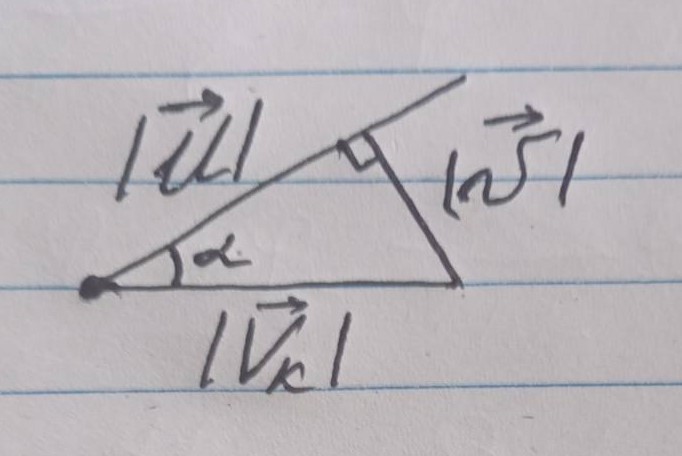 |u⃗|
|v⃗|
α
|V⃗ₖ|